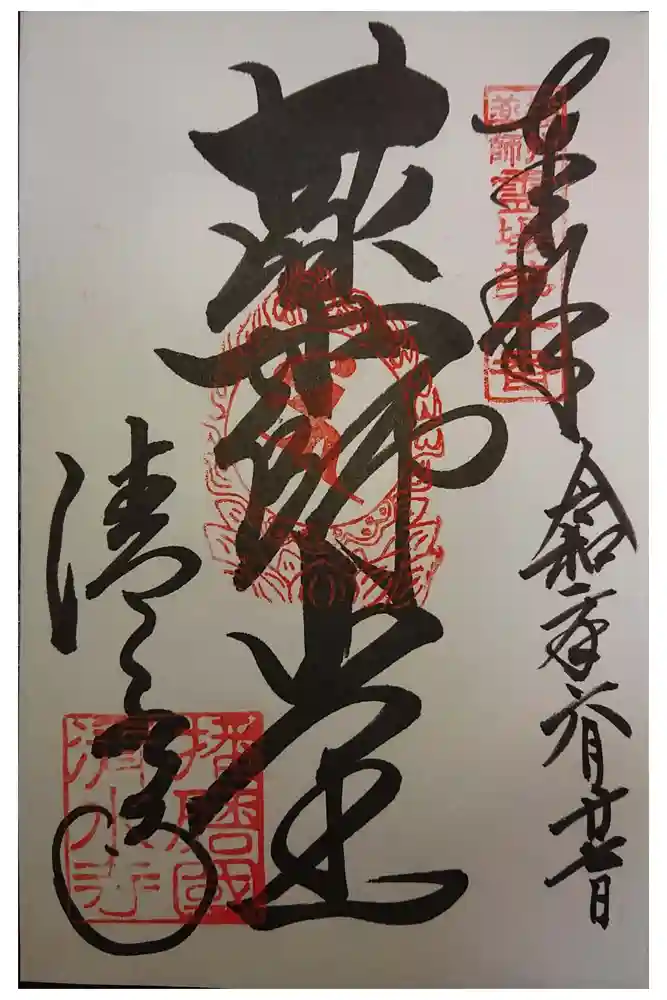 奉拝
令和二年六月廿七日
薬師堂
清水寺
薬師霊場
播磨國
清水寺